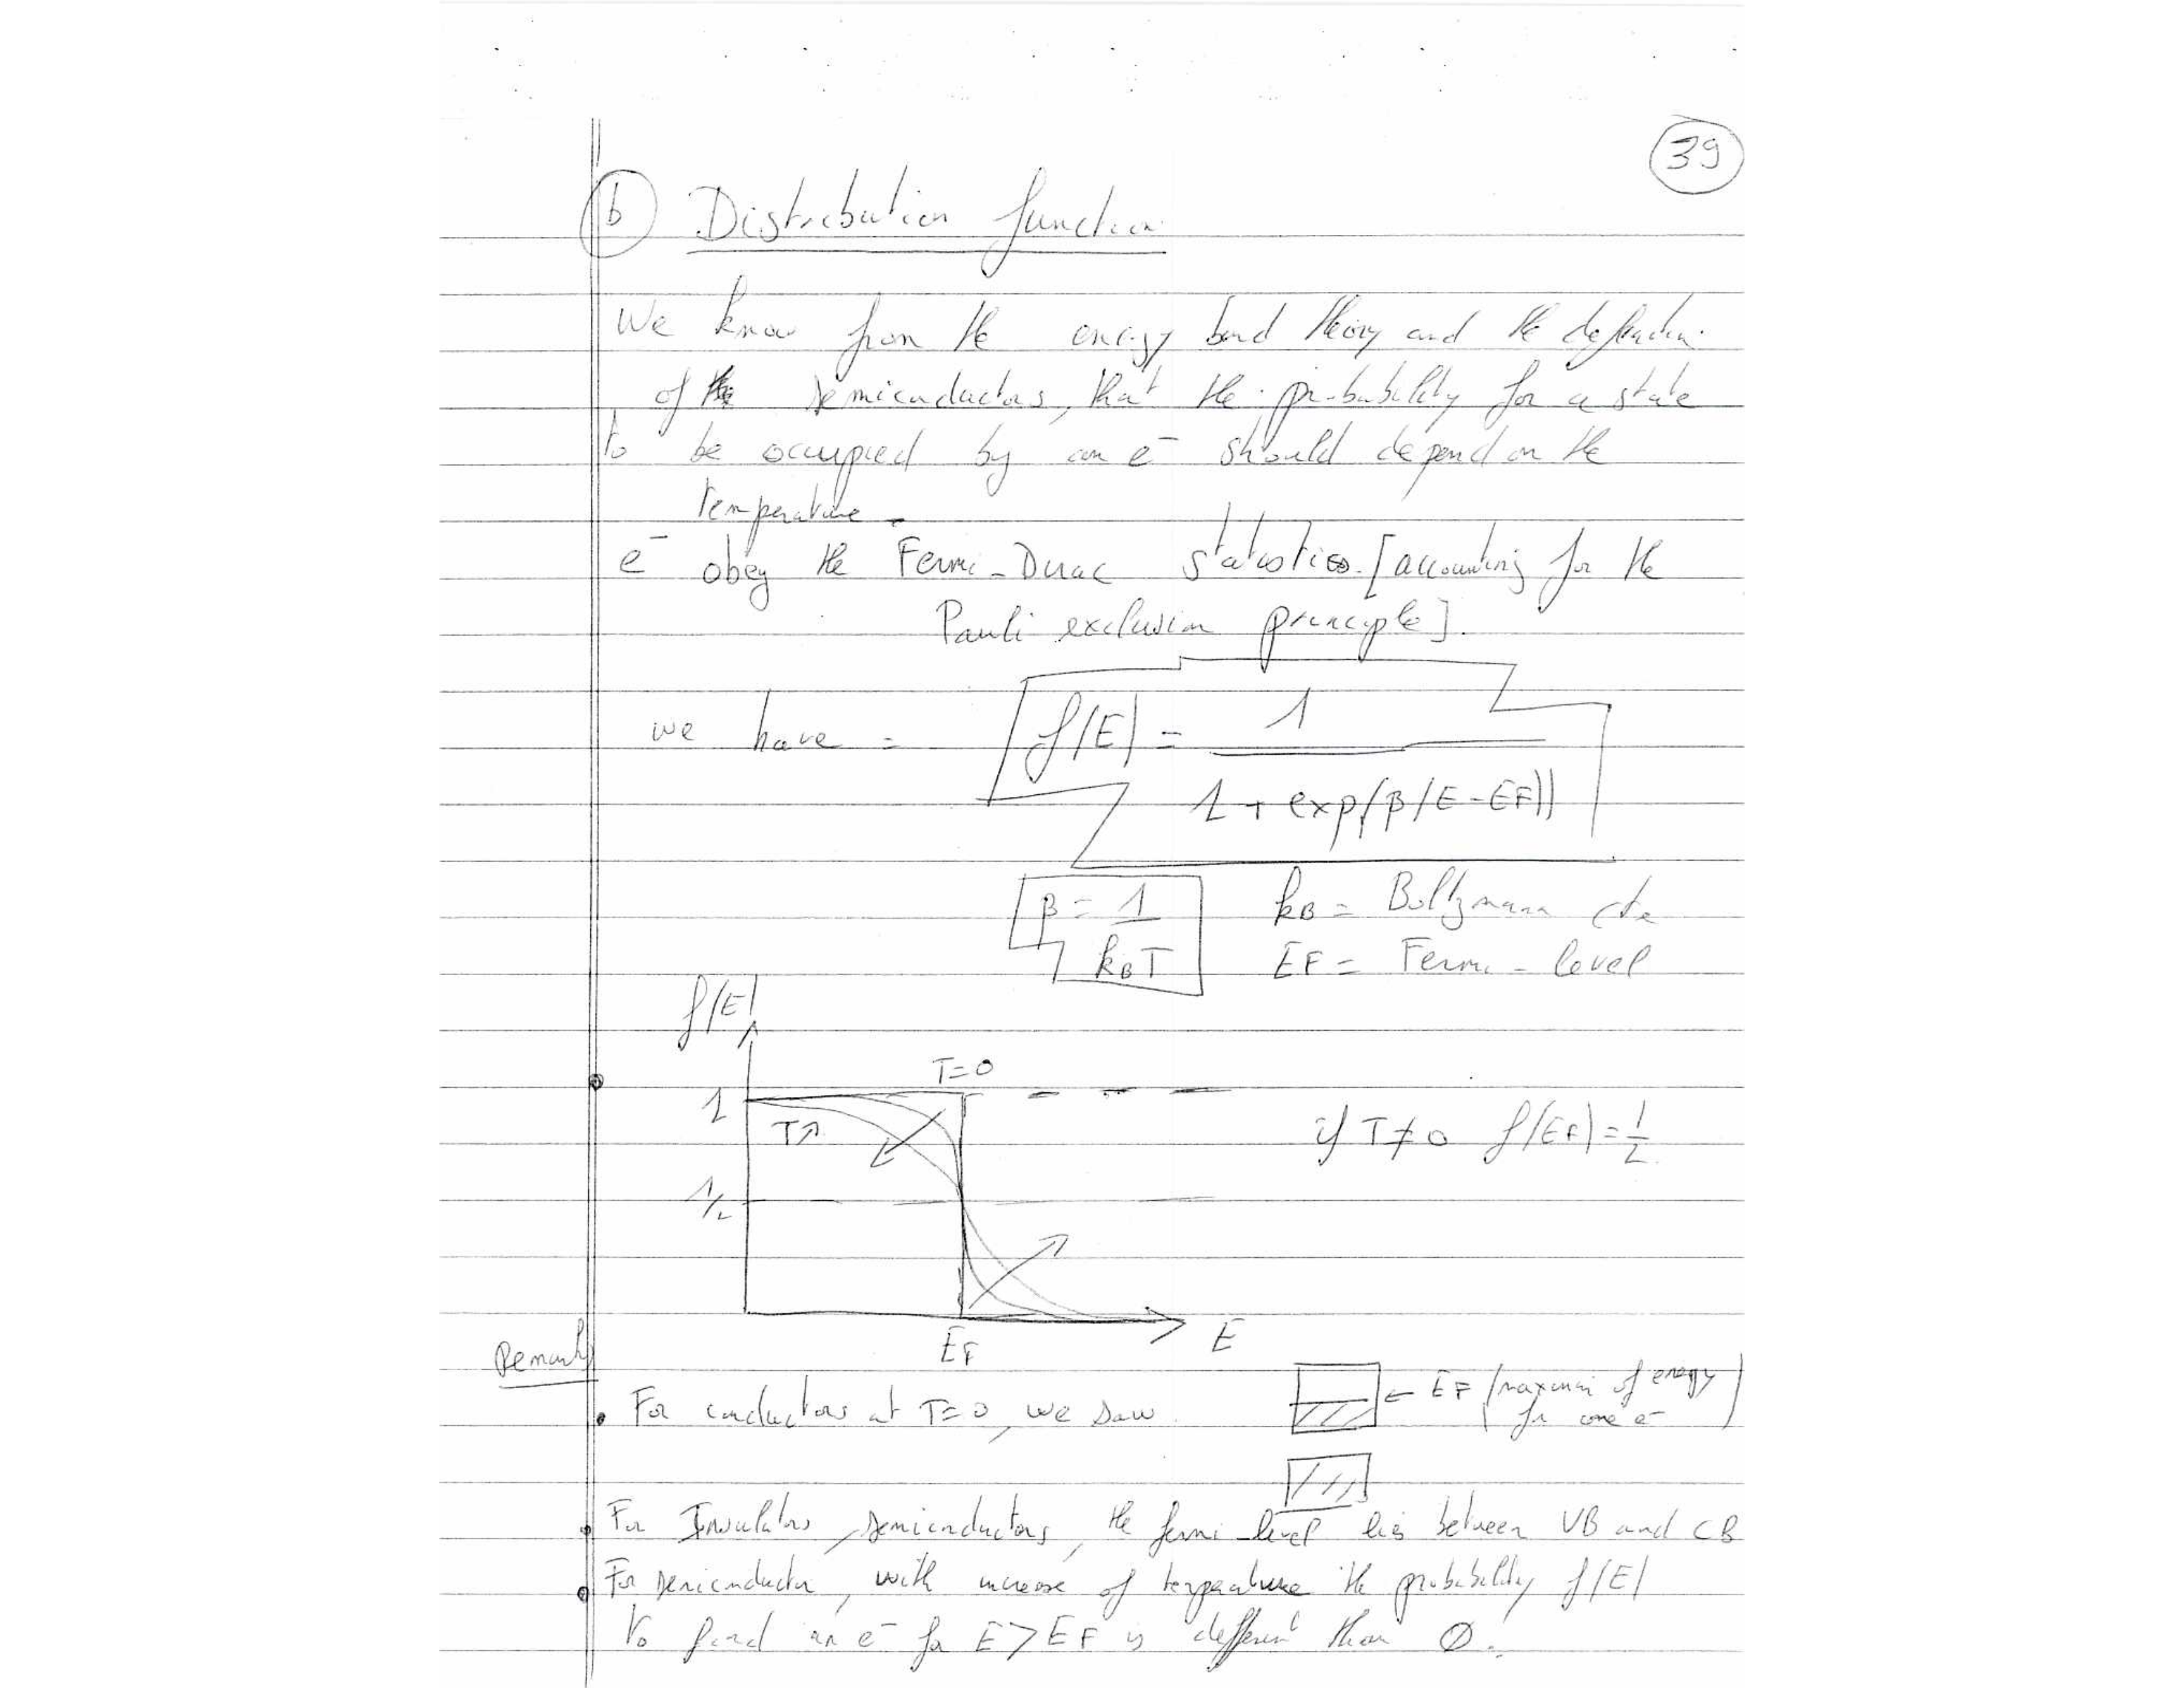 39
b Distribution function
We know from the energy band theory and the definition
of the semiconductors, that the probability for a state
to be occupied by an e⁻ should depend on the
temperature.
e⁻ obey the Fermi-Dirac statistics. [accounting for the
Pauli exclusion principle].
we have = f(E) = 1
1 + exp(β(E-EF))
β = 1 kB = Boltzmann cte
kBT EF = Fermi-level
f(E)
T=0
1
T↗
if T≠0 f(EF) = 1/2
1/2
EF
E
Remark
• For conductors at T=0, we saw ← EF (maximum of energy
for one e⁻)
• For Insulators, semiconductors, the fermi-level lies between VB and CB
• For semiconductor, with increase of temperature the probability f(E)
to find an e⁻ for E>EF is different than Ø.